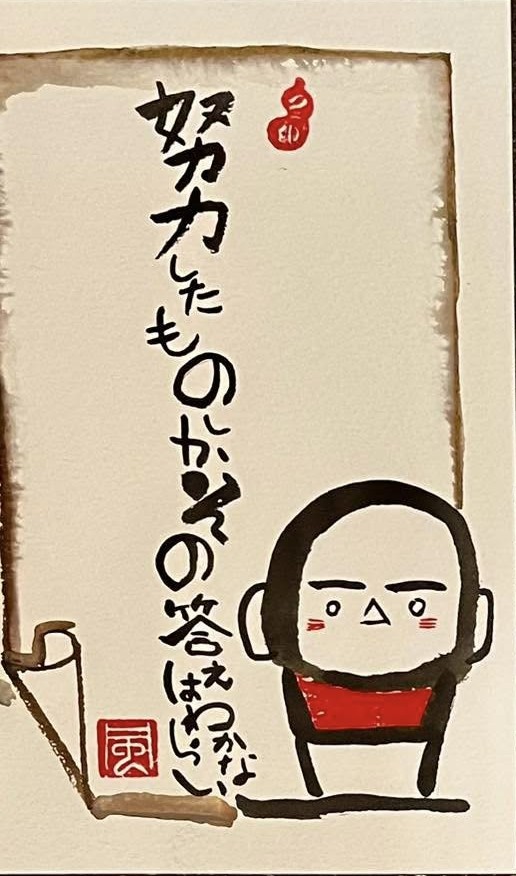 努力したものしかその答えはわからない
風